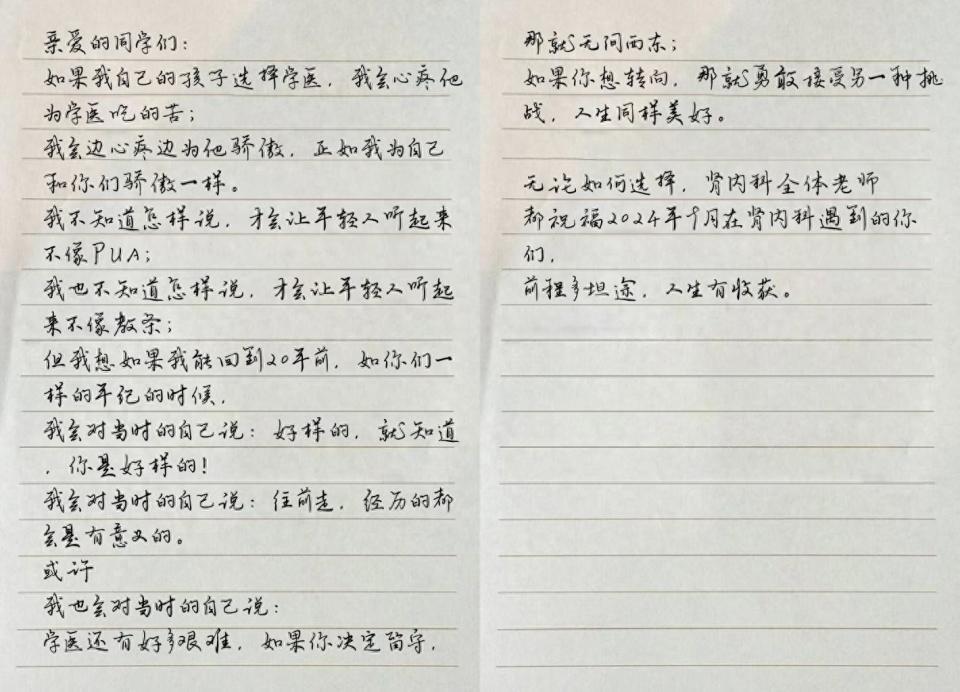 亲爱的同学们：
如果我自己的孩子选择学医，我会心疼他
为学医吃的苦；
我会边心疼边为他骄傲，正如我为自己
和你们骄傲一样。
我不知道怎样说，才会让年轻人听起来
不像PUA；
我也不知道怎样说，才会让年轻人听起
来不像教条；
但我想如果我能回到20年前，如你们一
样的年纪的时候，
我会对当时的自己说：好样的，就知道
，你是好样的！
我会对当时的自己说：往前走，经历的都
会是有意义的。
或许
我也会对当时的自己说：
学医还有好多艰难，如果你决定留守，
那就无问西东；
如果你想转向，那就勇敢接受另一种挑
战，人生同样美好。
无论如何选择，肾内科全体老师
都祝福2024年9月在肾内科遇到的你
们，
前程多坦途，人生有收获。